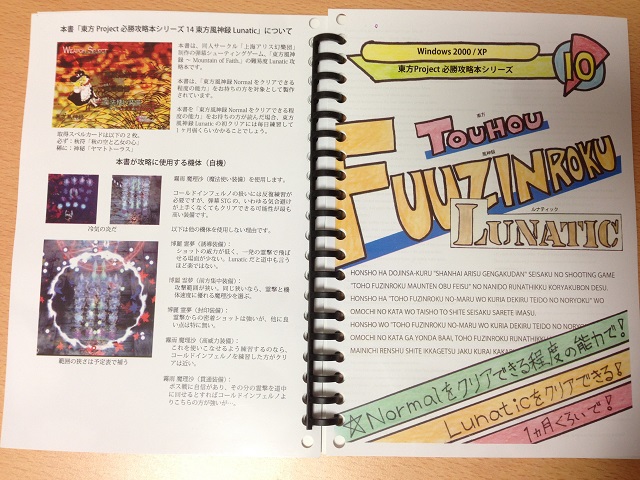 本書「東方 Project 必勝攻略本シリーズ 14 東方風神録 Lunatic」について
本書は、同人サークル「上海アリス幻樂団」
制作の弾幕シューティングゲーム、「東方風神録
～ Mountain of Faith.」の難易度 Lunatic 攻
略本です。
本書は、「東方風神録 Normal をクリアできる程
度の能力」をお持ちの方を対象として製作
されています。
本書を「東方風神録 Normal をクリアできる程
度の能力」をお持ちの方が読んだ場合、東方
風神録 Lunatic の初クリアには毎日練習して
1ヶ月弱くらいかかることでしょう。
取得スペルカードは以下の 2 枚。
必ず：秋符「秋の空と乙女の心」
稀に：神秘「ヤマトトーラス」
本書が攻略に使用する機体（自機）
霧雨 魔理沙（魔法使い装備）を使用します。
コールドインフェルノの扱いには反復練習が
必要ですが、弾幕 STG の、いわゆる気合避け
が上手くなくてもクリアできる可能性が最も
高い装備です。
冷気の炎だ
以下は他の機体を使用しない理由です。
博麗 霊夢（誘導装備）：
ショットの威力が低く、一発の霊撃で飛ば
せる場面が少ない。Lunatic だと道中も言う
ほど楽ではない。
博麗 霊夢（前方集中装備）：
攻撃範囲が狭い。同じ狭いなら、霊撃と機
体速度に優れる魔理沙を選ぶ。
博麗 霊夢（封印装備）：
霊撃からの密着ショットは強いが、他に良
い点は特に無い。
霧雨 魔理沙（高威力装備）：
これを使いこなせるよう練習するのなら、
コールドインフェルノを練習した方がクリ
アは近い。
範囲の狭さは予定表で補う
霧雨 魔理沙（貫通装備）：
ボス戦に自信があり、その分の霊撃を道中
に回せるとすればコールドインフェルノよ
りこちらの方が強いが…。
Windows 2000 / XP
東方Project 必勝攻略本シリーズ
10
東方
TOUHOU
風神録
FUUZINROKU
ルナティック
LUNATIC
HONSHO HA DOJINSA-KURU "SHANHAI ARISU GENGAKUDAN" SEISAKU NO SHOOTING GAME
"TOHO FUZINROKU MAUNTEN OBU FEISU" NO NANIDO RUNATHIKKU KORYAKUBON DESU.
HONSHO HA "TOHO FUZINROKU NO-MARU WO KURIA DEKIRU TEIDO NO NORYOKU" WO
OMOCHI NO KATA WO TAISHO TO SHITE SEISAKU SARETE IMASU.
HONSHO WO "TOHO FUZINROKU NO-MARU WO KURIA DEKIRU TEIDO NO NORYOKU" WO
OMOCHI NO KATA GA YONDA BAAI, TOHO FUZINROKU RUNATHIKKU
MAINICHI RENSHU SHITE IKKAGETSU JAKU KURAI
☆Normalをクリアできる程度の能力で!
Lunaticをクリアできる!
1ヵ月くらいで!